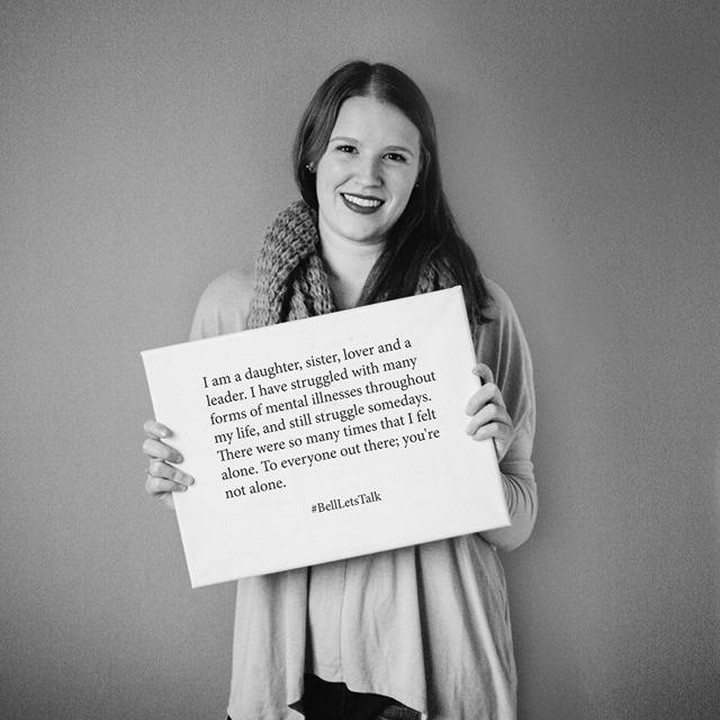 I am a daughter, sister, lover and a
leader. I have struggled with many
forms of mental illnesses throughout
my life, and still struggle somedays.
There were so many times that I felt
alone. To everyone out there; you're
not alone.
#BellLetsTalk